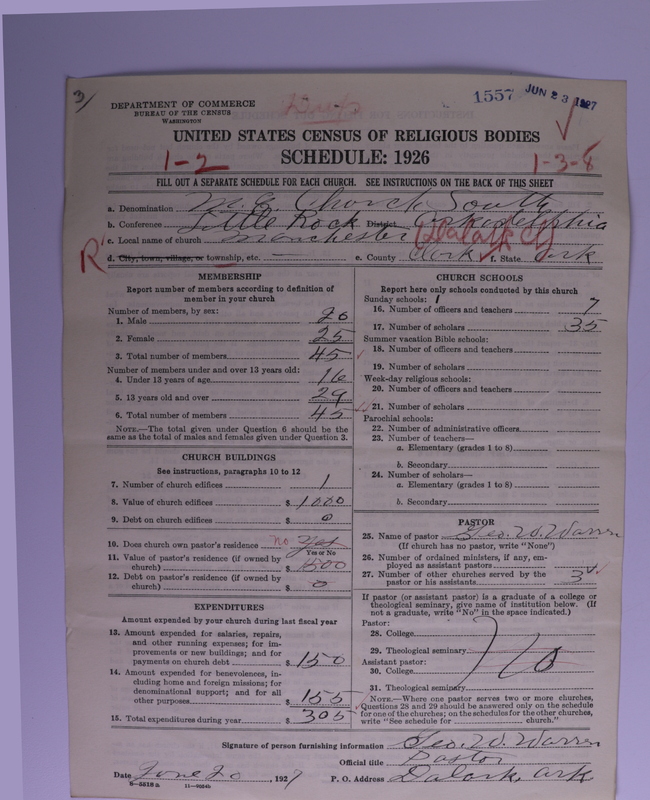 3/
1557 JUN 23 1927
DEPARTMENT OF COMMERCE
BUREAU OF THE CENSUS
WASHINGTON
UNITED STATES CENSUS OF RELIGIOUS BODIES
1-2 SCHEDULE: 1926 1-3-8
FILL OUT A SEPARATE SCHEDULE FOR EACH CHURCH. SEE INSTRUCTIONS ON THE BACK OF THIS SHEET
a. Denomination M. E. Church South
b. Conference Little Rock District Arkadelphia
c. Local name of church Manchester (Dalark Ct)
R d. City, town, village, or township, etc. — e. County Clark f. State Ark
MEMBERSHIP
Report number of members according to definition of member in your church
Number of members, by sex:
1. Male 20
2. Female 25
3. Total number of members 45
Number of members under and over 13 years old:
4. Under 13 years of age 16
5. 13 years old and over 29
6. Total number of members 45
NOTE.—The total given under Question 6 should be the
same as the total of males and females given under Question 3.
CHURCH BUILDINGS
See instructions, paragraphs 10 to 12
7. Number of church edifices 1
8. Value of church edifices $ 1000
9. Debt on church edifices $ 0
10. Does church own pastor's residence no Yes
Yes or No
11. Value of pastor's residence (if owned by
church) $ 1500
12. Debt on pastor's residence (if owned by
church) $ 0
EXPENDITURES
Amount expended by your church during last fiscal year
13. Amount expended for salaries, repairs,
and other running expenses; for im-
provements or new buildings; and for
payments on church debt $ 150
14. Amount expended for benevolences, in-
cluding home and foreign missions; for
denominational support; and for all
other purposes $ 155
15. Total expenditures during year $ 305
CHURCH SCHOOLS
Report here only schools conducted by this church
Sunday schools: 1
16. Number of officers and teachers 7
17. Number of scholars 35
Summer vacation Bible schools:
18. Number of officers and teachers
19. Number of scholars
Week-day religious schools:
20. Number of officers and teachers
21. Number of scholars
Parochial schools:
22. Number of administrative officers
23. Number of teachers—
a. Elementary (grades 1 to 8)
b. Secondary
24. Number of scholars—
a. Elementary (grades 1 to 8)
b. Secondary
PASTOR
25. Name of pastor Geo. W. Warren
(If church has no pastor, write "None")
26. Number of ordained ministers, if any, em-
ployed as assistant pastors
27. Number of other churches served by the
pastor or his assistants 3
If pastor (or assistant pastor) is a graduate of a college or
theological seminary, give name of institution below. (If
not a graduate, write "No" in the space indicated.)
Pastor:
28. College
29. Theological seminary No
Assistant pastor:
30. College
31. Theological seminary
NOTE.—Where one pastor serves two or more churches,
Questions 28 and 29 should be answered only on the schedule
for one of the churches; on the schedules for the other churches,
write "See schedule for church."
Signature of person furnishing information Geo. W. Warren
Official title Pastor
Date June 20, 1927 P. O. Address Dalark, Ark